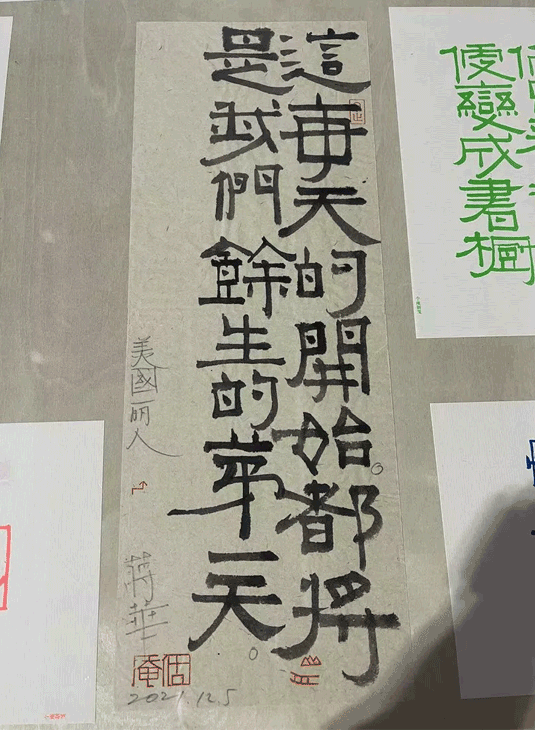 這每天的開始都將
是我們餘生的第一天
美國丽人
蔣華
2021.12.5
變成書櫥